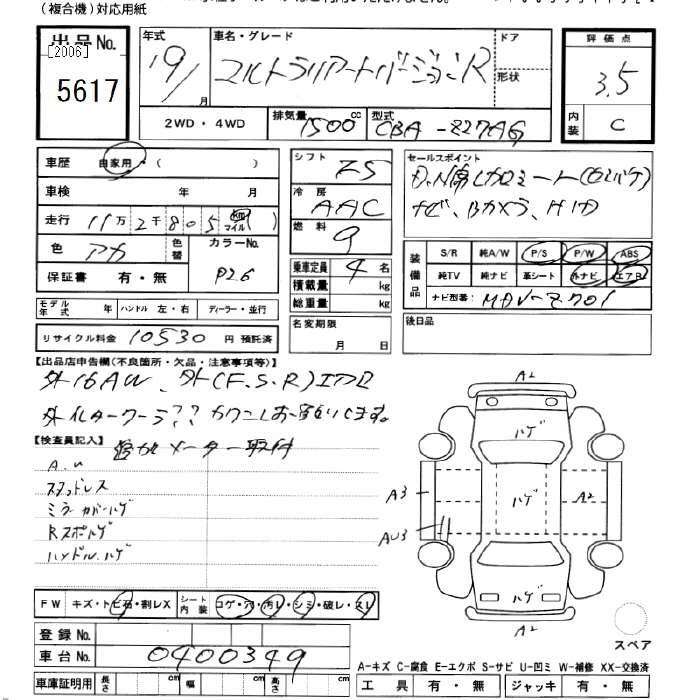 (複合機)対応用紙
出品No.
[2006]
5617
年式 19/ 月
車名・グレード コルトラリアートバージョンR
ドア
形状
2WD・4WD
排気量 1500 cc
型式 CBA-Z27AG
評価点 3.5
内装 C
車歴 自家用・( )
車検 年 月
走行 11万2千805 km マイル ( )
色 アカ
色替
カラーNo. P26
保証書 有・無
モデル年式 年
ハンドル 左・右
ディーラー・並行
リサイクル料金 10530 円 預託済
シフト
冷房 AAC
燃料
乗車定員 4 名
積載量 kg
総重量 kg
名変期限 月 日
セールスポイント
ナビ、Bカメラ、HID
装備品
S/R 純A/W P/S P/W ABS
純TV 純ナビ 革シート 外ナビ エアB
ナビ型番:
後日品
【出品店申告欄(不良箇所・欠品・注意事項等)】
外16AW、外(F.S.R)エアロ
【検査員記入】
メーター取付
A.W
スタッドレス
ミラーカバーハゲ
Rスポハゲ
ハンドルハゲ
A2
ハゲ
A3
ハゲ
A2
AU3
ハゲ ハゲ
A2
スペア
FW キズ・トビ石・割レX
シート内装 コゲ・穴・汚レ・シミ・破レ・スレ
登録No.
車台No. 0400349
車庫証明用 長さ cm 幅 cm 高さ cm
A-キズ C-腐食 E-エクボ S-サビ U-凹ミ W-補修 XX-交換済
工具 有・無 ジャッキ 有・無